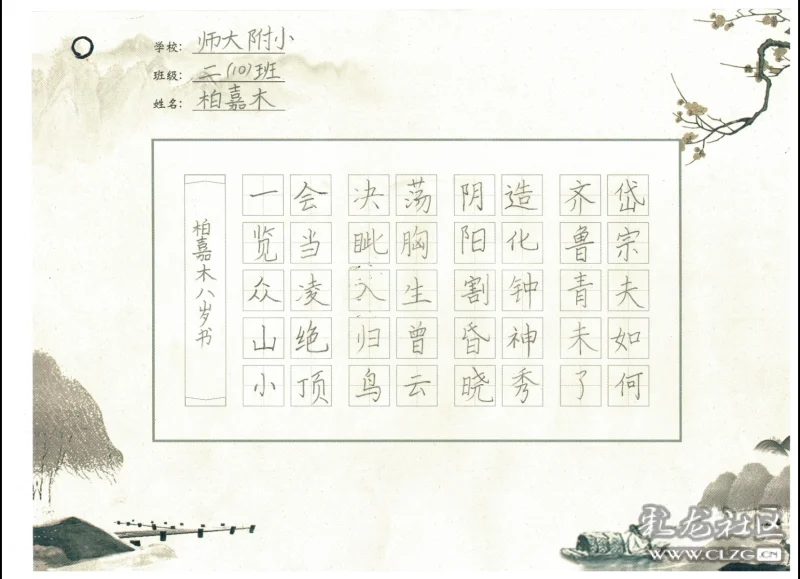 学校：师大附小
班级：二(10)班
姓名：柏嘉木
岱宗夫如何
齐鲁青未了
造化钟神秀
阴阳割昏晓
荡胸生曾云
决眦入归鸟
会当凌绝顶
一览众山小
柏嘉木八岁书
乳龙社区
WWW.CLZG.CN